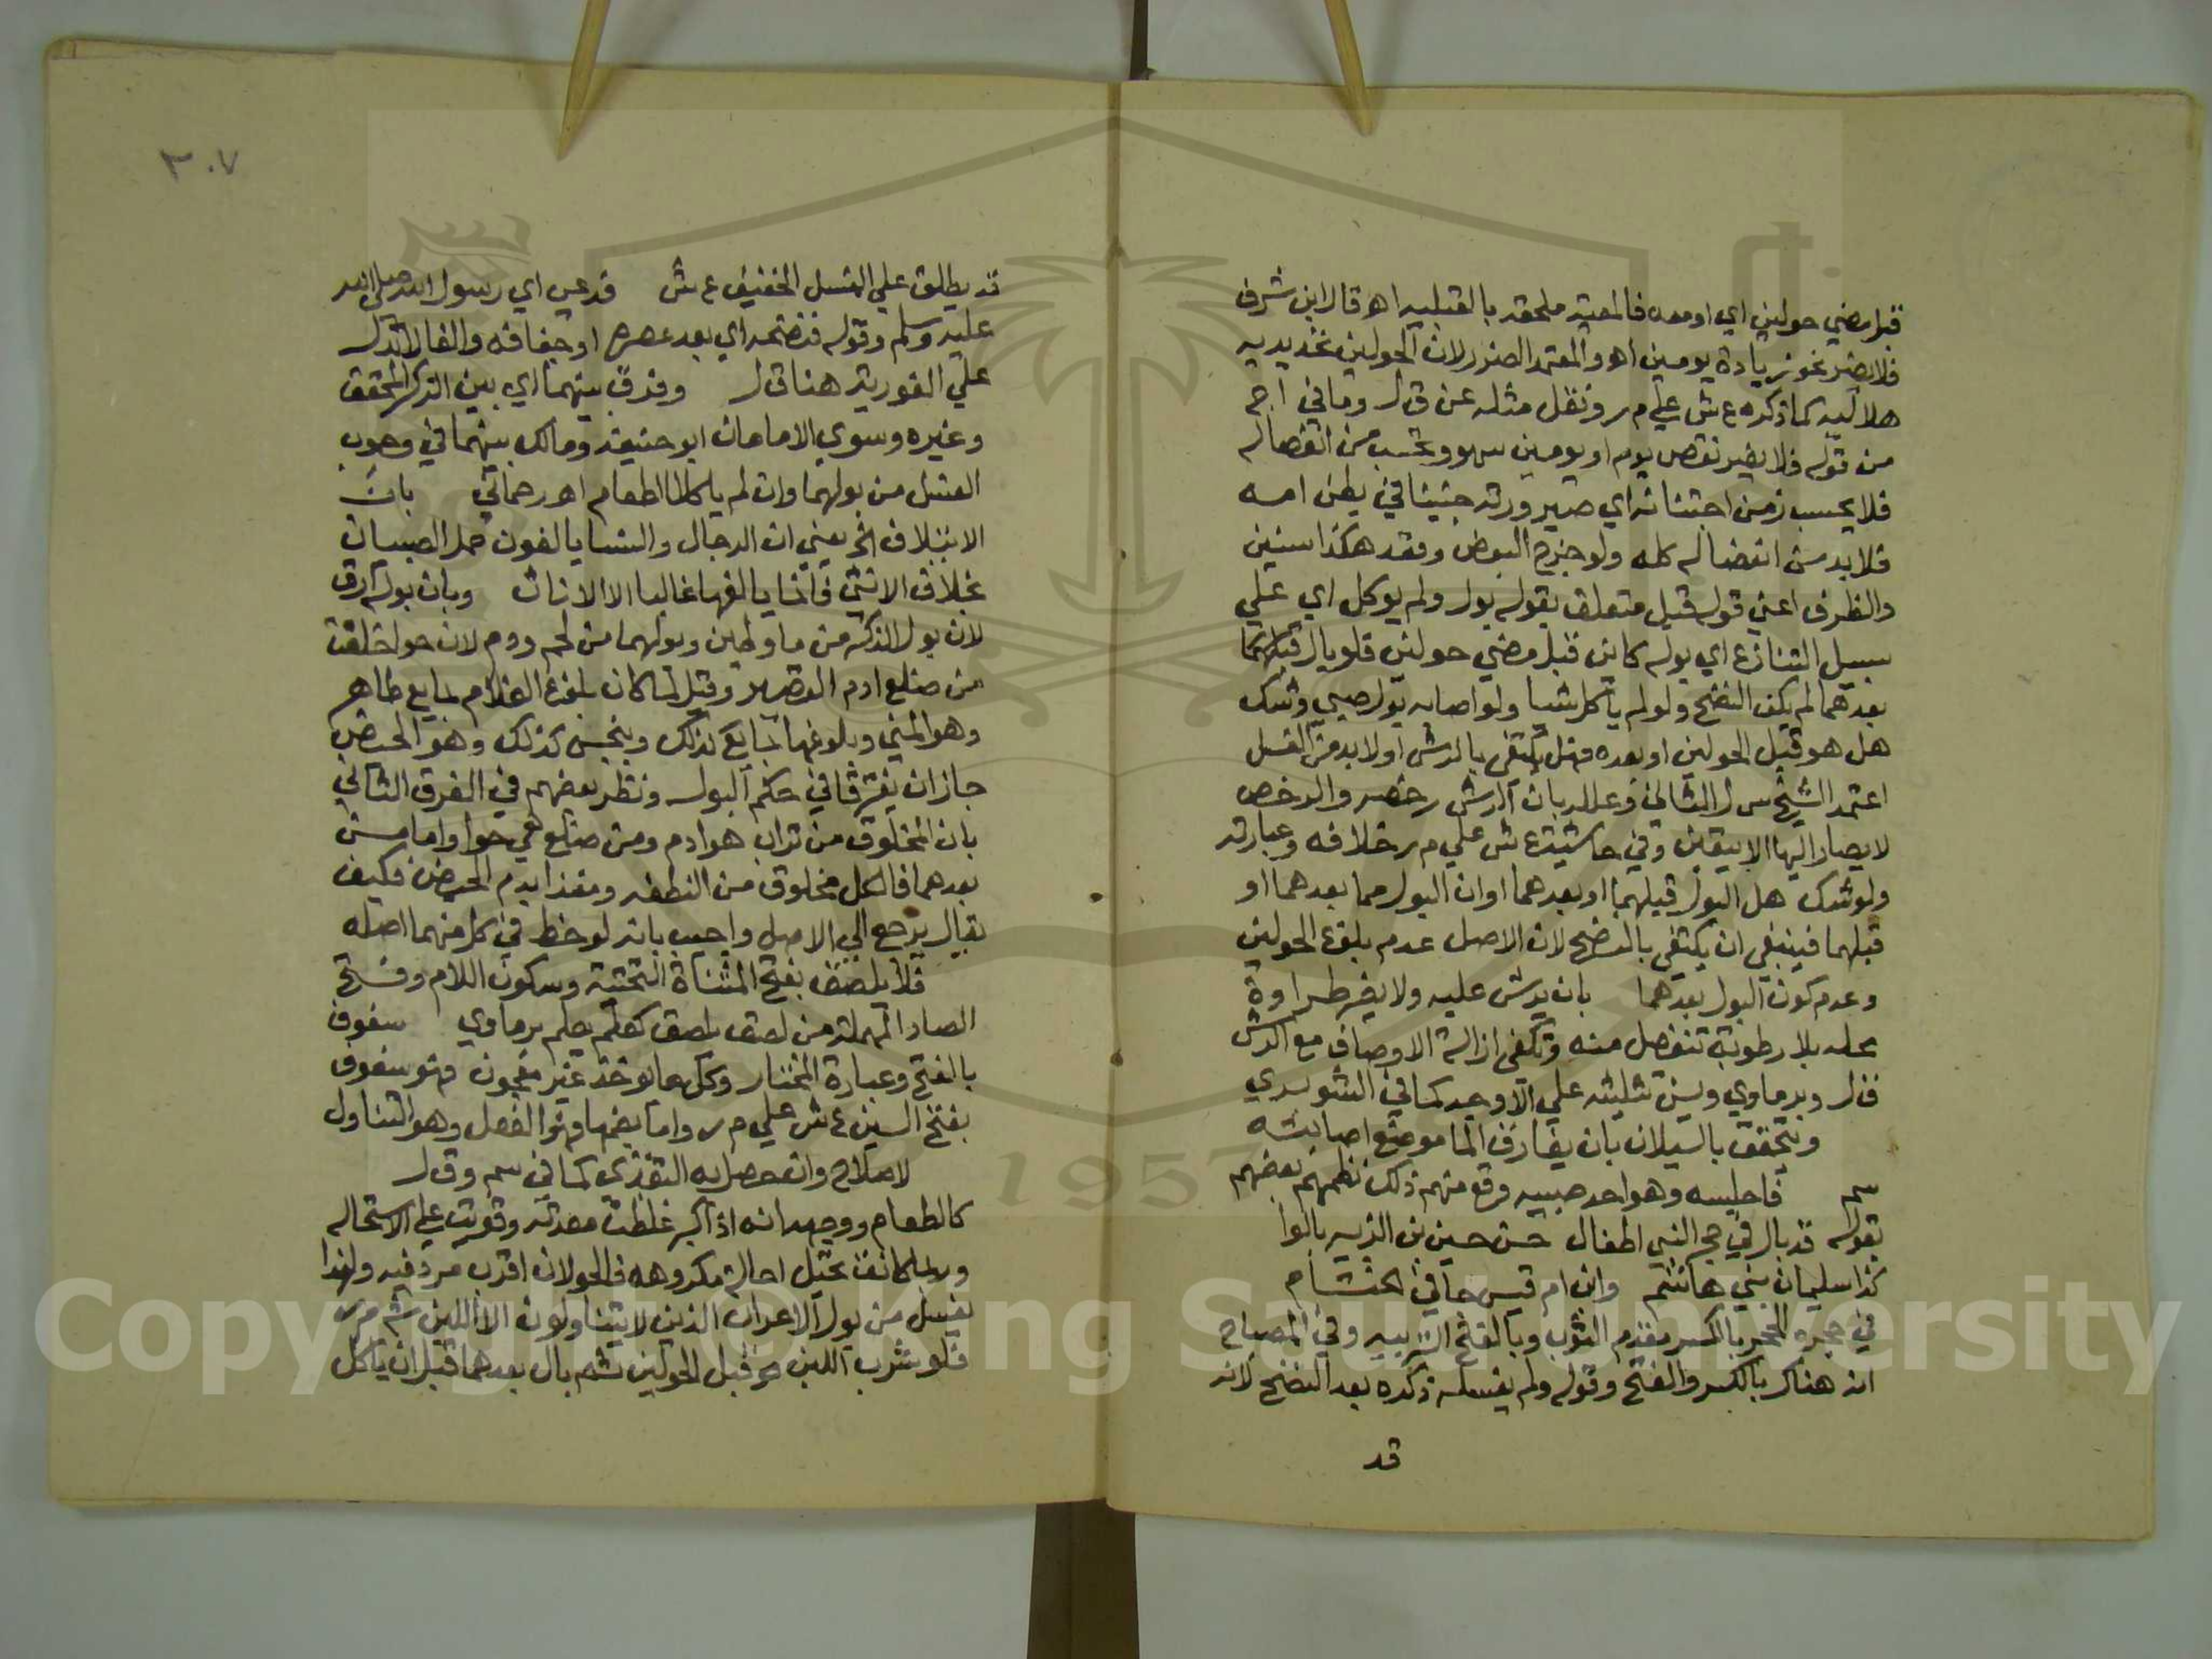 قبل مضي حولين اي او معه فالمعية ملحقة بالقبلية اه قال ابن شرف
فلا يضر نحو زيادة يومين اه والمعتمد الضرر لان الحولين تحديدية
هلالية كما ذكره ع ش علي م ر ونقل مثله عن ق ل وما في ا ج
من قوله فلا يضر نقص يوم او يومين سهو ويحسب من انفصاله
فلا يحسب زمن اجتنانه اي صيرورته جنينا في بطن امه
فلا بد من انفصاله كله ولو خرج البعض وفقد هكذا سنين
والظرف اعني قوله قبل متعلق بقوله بول ولم يوكل اي علي
سبيل التنازع اي بوله كاين قبل مضي حولين فلو بال قبلهما
بعدهما لم يكف النضح ولو لم ياكل شيا ولو اصابه بول صبي وشك
هل هو قبل الحولين او بعده فهل يكتفي بالرش او لا بد من الغسل
اعتمد الشيخ س ل الثاني وعلل بان الرش رخصه والرخص
لا يصار اليها الا بيقين وفي حاشية ع ش علي م ر خلافه وعبارته
ولو شك هل البول قبلهما او بعدهما او ان البول مما بعدهما او
قبلهما فينبغي ان يكتفي بالنضح لان الاصل عدم بلوغ الحولين
وعدم كون البول بعدهما بان يرش عليه ولا يضر طراوة
محله بلا رطوبة تنفصل منه وتكفي ازالة الاوصاف مع الرش
ق ل وبرماوي ويسن تثليثه علي الاوجه كما في الشوبري
ويتحقق بالسيلان بان يفارق الما موضع اصابته
فاجلسه وهو احد صبيه وقع منهم ذلك نظمهم بعضهم
بقوله قد بال في حجر النبي اطفال حسن حسين بن الزبير بالوا
كذا سليمان بني هاشم وابن ام قيس جا في الختام
في حجره الحجر بالكسر مقدم الثوب وبالفتح التربيه وفي المصباح
انه هناك بالكسر والفتح وقوله ولم يغسله ذكره بعد النضح لانه
قد
٣٠٧
قد يطلق علي الغسل الخفيف ع ش قدعي اي رسول الله صلى الله
عليه وسلم وقوله فنضحه اي بعد عصره او جفافه والفا لا تدل
علي الفورية هنا ق ل وفرق بينهما اي بين الذكر المحقق
وغيره وسوي الامامان ابو حنيفة ومالك بينهما في وجوب
الغسل من بولهما وان لم ياكلا الطعام اه رحماني بان
الايتلاف الخ يعني ان الرجال والنسا يالفون حمل الصبيان
بخلاف الانثي فانما يالفها غالبا الا الاناث وبان بوله ارق
لان بول الذكر من ما وطين وبولهما من لحم ودم لان حوا خلقت
من ضلع ادم القصير وقيل لما كان بلوغ الغلام بمايع طاهر
وهو المني وبلوغها بمايع كذلك وبنجس كذلك وهو الحيض
جاز ان يفترقا في حكم البول ونظر بعضهم في الفرق الثاني
بان المخلوق من تراب هو ادم ومن ضلع هي حوا واما من
بعدهما فالكل مخلوق من النطفة ومغذا بدم الحيض فكيف
يقال يرجع الي الاصل واجيب بانه لوحظ في كل منهما اصله
فلا يلصق بفتح المثناة التحتية وسكون اللام وفتح
الصاد المهملة من لصق يلصق كعلم يعلم برماوي سفوف
بالفتح وعبارة المختار وكل ما يوخذ غير معجون فهو سفوف
بفتح السين ع ش علي م ر واما بضمها فهو الفعل وهو التناول
لاصلاح وان حصل به التغذي كما في سم وق ل
كالطعام ووجهه انه اذا كبر غلظت معدته وقويت علي الاستحاله
وربما كانت تحيل احالة مكروهة فالحولان اقرب مرد فيه ولهذا
يغسل من بول الاعراب الذين لا يتناولون الا اللبن شم م ر
فلو شرب اللبن قبل الحولين ثم بال بعدهما قبل ان ياكل